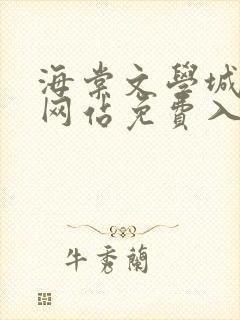 海棠文學城
网估免費入
牛秀蘭